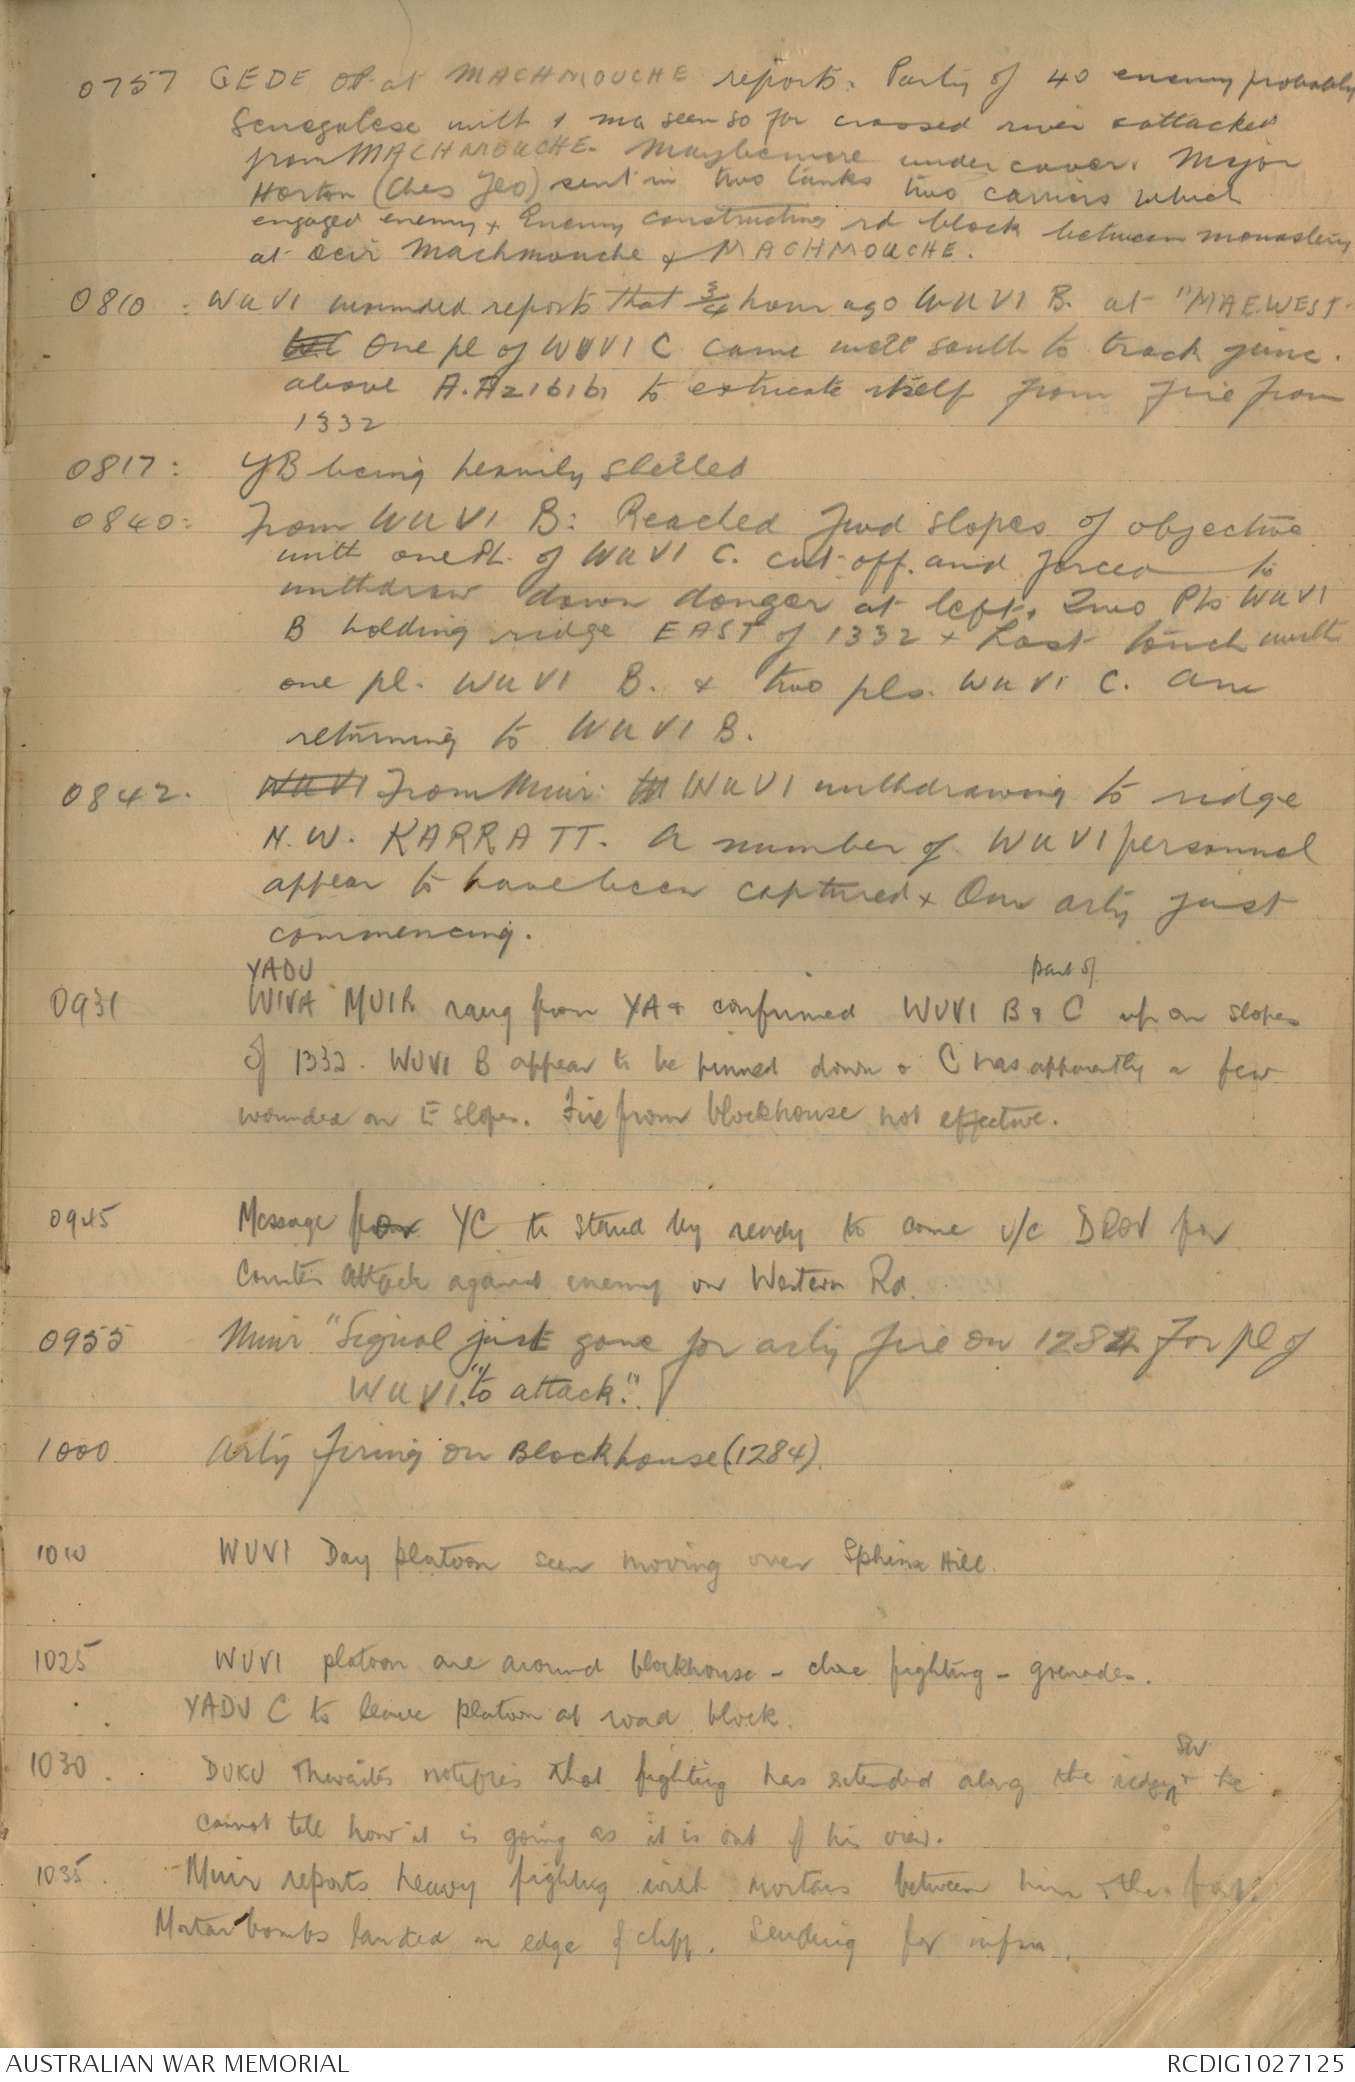 0757 GEDE OP at MACHMOUCHE reports. Party of 40 enemy probably
Senegalese with 1 mg seen so far crossed river & attacked
from MACHMOUCHE. Maybe more under cover. Major
Horton (Ches Yeo) sent in two tanks two carriers which
engaged enemy + Enemy constructing rd block between monastery
at Deir Machmouche & MACHMOUCHE.
0810 : WUVI wounded reports that 3/4 hour ago WUVI B. at "MAEWEST.
One pl of WUVI C came well south to track junc.
above A.A216161 to extricate itself from fire from
1332
0817: YB being heavily shelled
0840: From WUVI B: Reached fwd slopes of objective
with one Pl. of WUVI C. cut off and forced to
withdraw down at left. Two Pls WUVI
B holding ridge EAST of 1332 + Lost touch with
one pl. WUVI B. & two pls. WUVI C. Am
returning to WUVI B.
0842. WUVI From Muir: WUVI withdrawing to ridge
N.W. KARRATT. A number of WUVI personnel
appear to have been captured + Our arty just
commencing.
YADU part of
0931 WIVA MUIR rang from YA & confirmed WUVI B & C up on slopes
of 1332. WUVI B appear to be pinned down & C has apparently a few
wounded on E slopes. Fire from blockhouse not effective.
0945 Message for YC to stand by ready to come u/c DROV for
Counter Attack against enemy on Western Rd.
0955 Muir "Signal just gone for arty fire on 1284 For pl of
WUVI "to attack".
1000 Arty firing on Blockhouse (1284).
1010 WUVI Day platoon seen moving over Sphinx Hill.
1025 WUVI platoon are around blockhouse - close fighting - grenades.
YADU C to leave platoon at road block.
SW
1030. DUKU Thwaites notifies that fighting has extended along the ridge & he
cannot tell how it is going as it is out of his view.
1035. Muir reports heavy fighting with mortars between him & the fort.
Mortar bombs landed on edge of cliff. Sending for infm.
AUSTRALIAN WAR MEMORIAL RCDIG1027125